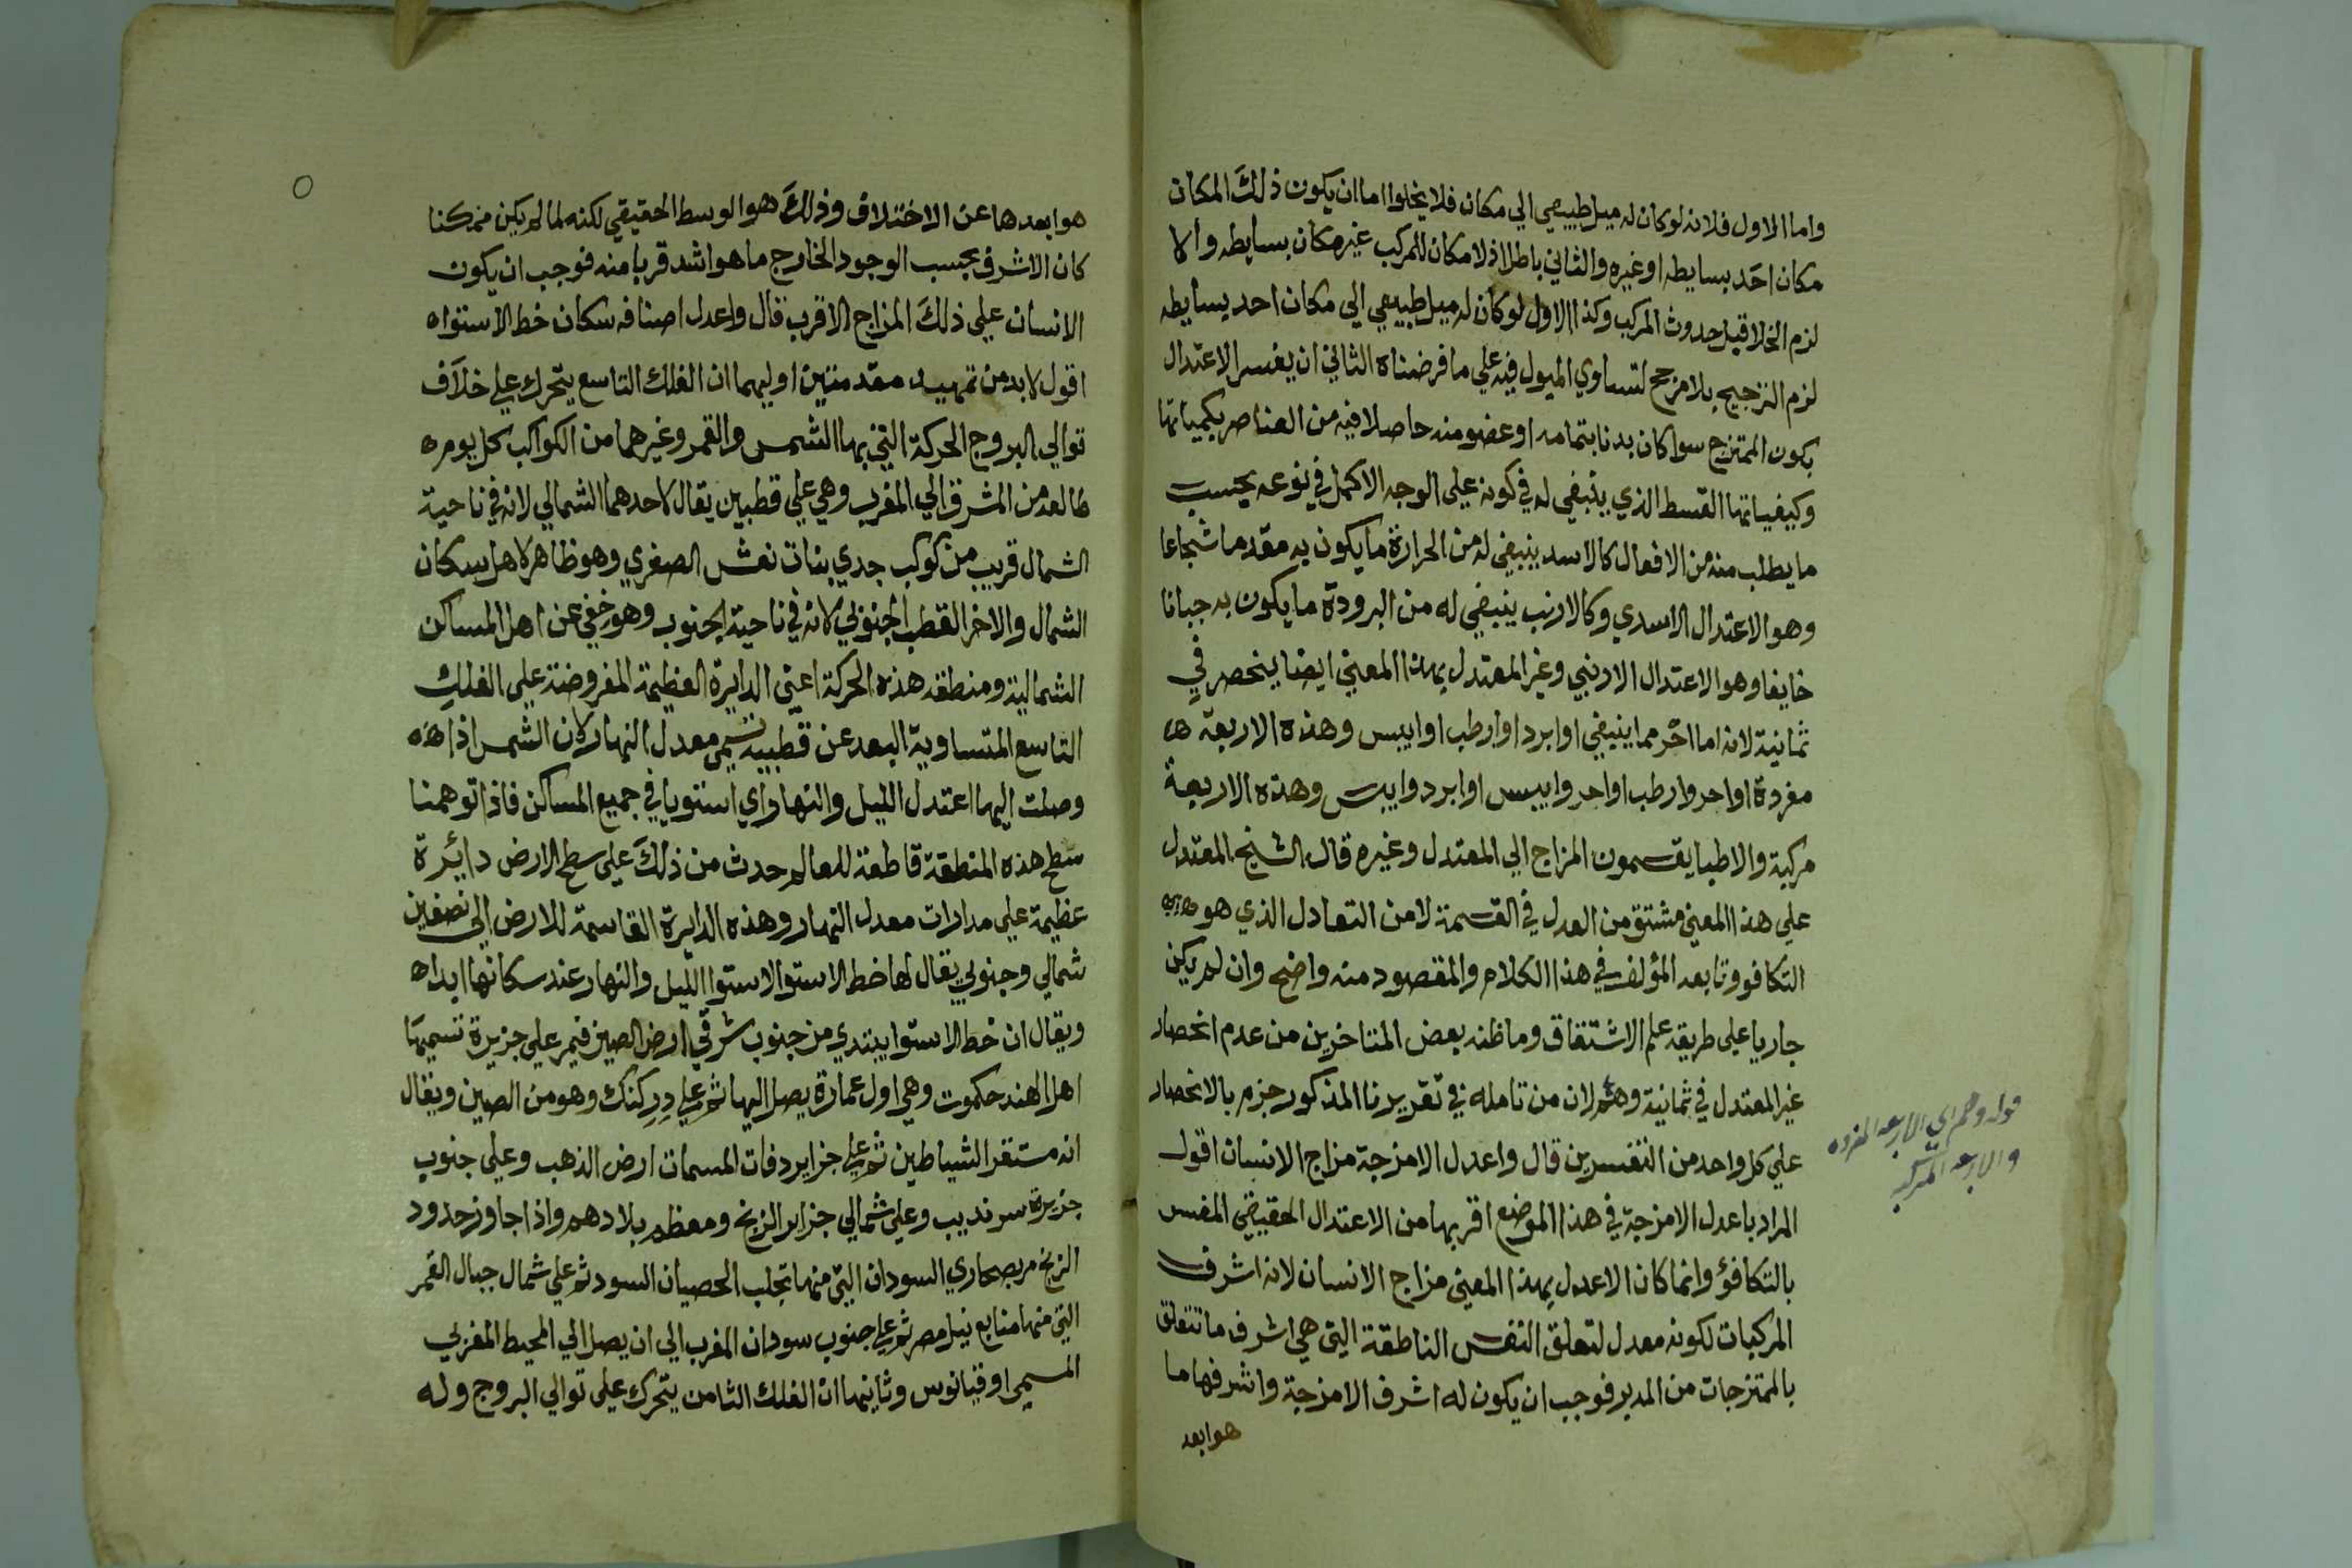 واما الاول فلانه لو كان له ميل طبيعي الي مكان فلا يخلوا اما ان يكون ذلك المكان
مكان احد بسايطه او غيره والثاني باطل اذ لا مكان للمركب غير مكان بسايطه والا
لزم الخلا قبل حدوث المركب وكذا الاول لو كان له ميل طبيعي الي مكان احد بسايطه
لزم الترجيح بلا مرجح لتساوي الميول فيه علي ما فرضناه الثاني ان يفسر الاعتدال
بكون الممتزج سوا كان بدنا بتمامه او عضو منه حاصلا فيه من العناصر بكمياتها
وكيفياتها القسط الذي ينبغي له في كونه علي الوجه الاكمل في نوعه بحسب
ما يطلب منه من الافعال كالاسد ينبغي له من الحرارة ما يكون به مقدما شجاعا
وهو الاعتدال الاسدي وكالارنب ينبغي له من البرودة ما يكون به جبانا
خايفا وهو الاعتدال الارنبي وغير المعتدل بهذا المعني ايضا ينحصر في
ثمانية لانه اما احر مما ينبغي او ابرد او ارطب او ايبس وهذه الاربعة
مفردة او احر وارطب او احر وايبس او ابرد وايبس وهذه الاربعة
مركبة والاطبا يقسمون المزاج الي المعتدل وغيره قال الشيخ المعتدل
علي هذا المعني مشتق من العدل في القسمة لا من التعادل الذي هو
التكافو وتابعه المؤلف في هذا الكلام والمقصود منه واضح وان لم يكن
جاريا علي طريقه علم الاشتقاق وما ظنه بعض المتاخرين من عدم انحصار
غير المعتدل في ثمانية وهم لان من تامله في تقريرنا المذكور جزم بالانحصار
علي كل واحد من التفسرين قال واعدل الامزجة مزاج الانسان اقول
المراد باعدل الامزجة في هذا الموضع اقربها من الاعتدال الحقيقي المفسر
بالتكافؤ وانما كان الاعدل بهذا المعني مزاج الانسان لانه اشرف
المركبات لكونه معدل لتعلق النفس الناطقة التي هي اشرف ما تتعلق
بالممتزجات من المدبر فوجب ان يكون له اشرف الامزجة واشرفها ما
هو ابعد
قوله وهم اي الاربعه المفرده
والاربعه المركبه
هو ابعدها عن الاختلاف وذلك هو الوسط الحقيقي لكنه لما لم يكن ممكنا
كان الاشرف بحسب الوجود الخارج ما هو اشد قربا منه فوجب ان يكون
الانسان علي ذلك المزاج الاقرب قال واعدل اصنافه سكان خط الاستواه
اقول لا بد من تمهيد مقدمتين اوليهما ان الفلك التاسع يتحرك علي خلاف
توالي البروج الحركة التي بها الشمس والقمر وغيرهما من الكواكب كل يوم
طالعة من المشرق الي المغرب وهي علي قطبين يقال لاحدهما الشمالي لانه في ناحية
الشمال قريب من كوكب جدي بنات نعش الصغري وهو ظاهر لاهل سكان
الشمال والاخر القطب الجنوبي لانه في ناحية الجنوب وهو خفي عن اهل المساكن
الشمالية ومنطقه هذه الحركة اعني الدايرة العظيمة المفروضة علي الفلك
التاسع المتساوية البعد عن قطبيه تسمي معدل النهار لان الشمس اذا
وصلت اليها اعتدل الليل والنهار اي استويا في جميع المساكن فاذا توهمنا
سطح هذه المنطقة قاطعة للعالم حدث من ذلك علي سطح الارض دائرة
عظيمة علي مدارات معدل النهار وهذه الدايرة القاسمة للارض الي نصفين
شمالي وجنوبي يقال لها خط الاستوا لاستوا الليل والنهار عند سكانها ابدا
ويقال ان خط الاستوا يبتدي من جنوب شرقي ارض الصين فيمر علي جزيرة تسميها
اهل الهند حكموت وهي اول عمارة يصل اليها ثم علي در كنك وهو من الصين ويقال
انه مستقر الشياطين ثم علي جزاير دفات المسمات ارض الذهب وعلي جنوب
جزيرة سرنديب وعلي شمالي جزاير الزنج ومعظم بلادهم واذا جاوز حدود
الزنج مر بصحاري السودان التي منها تجلب الحصيان السود ثم علي شمال جبال القمر
التي منها منابع نيل مصر ثم علي جنوب سودان المغرب الي ان يصل الي المحيط المغربي
المسمي اوقيانوس وثانيها ان الفلك الثامن يتحرك علي توالي البروج وله